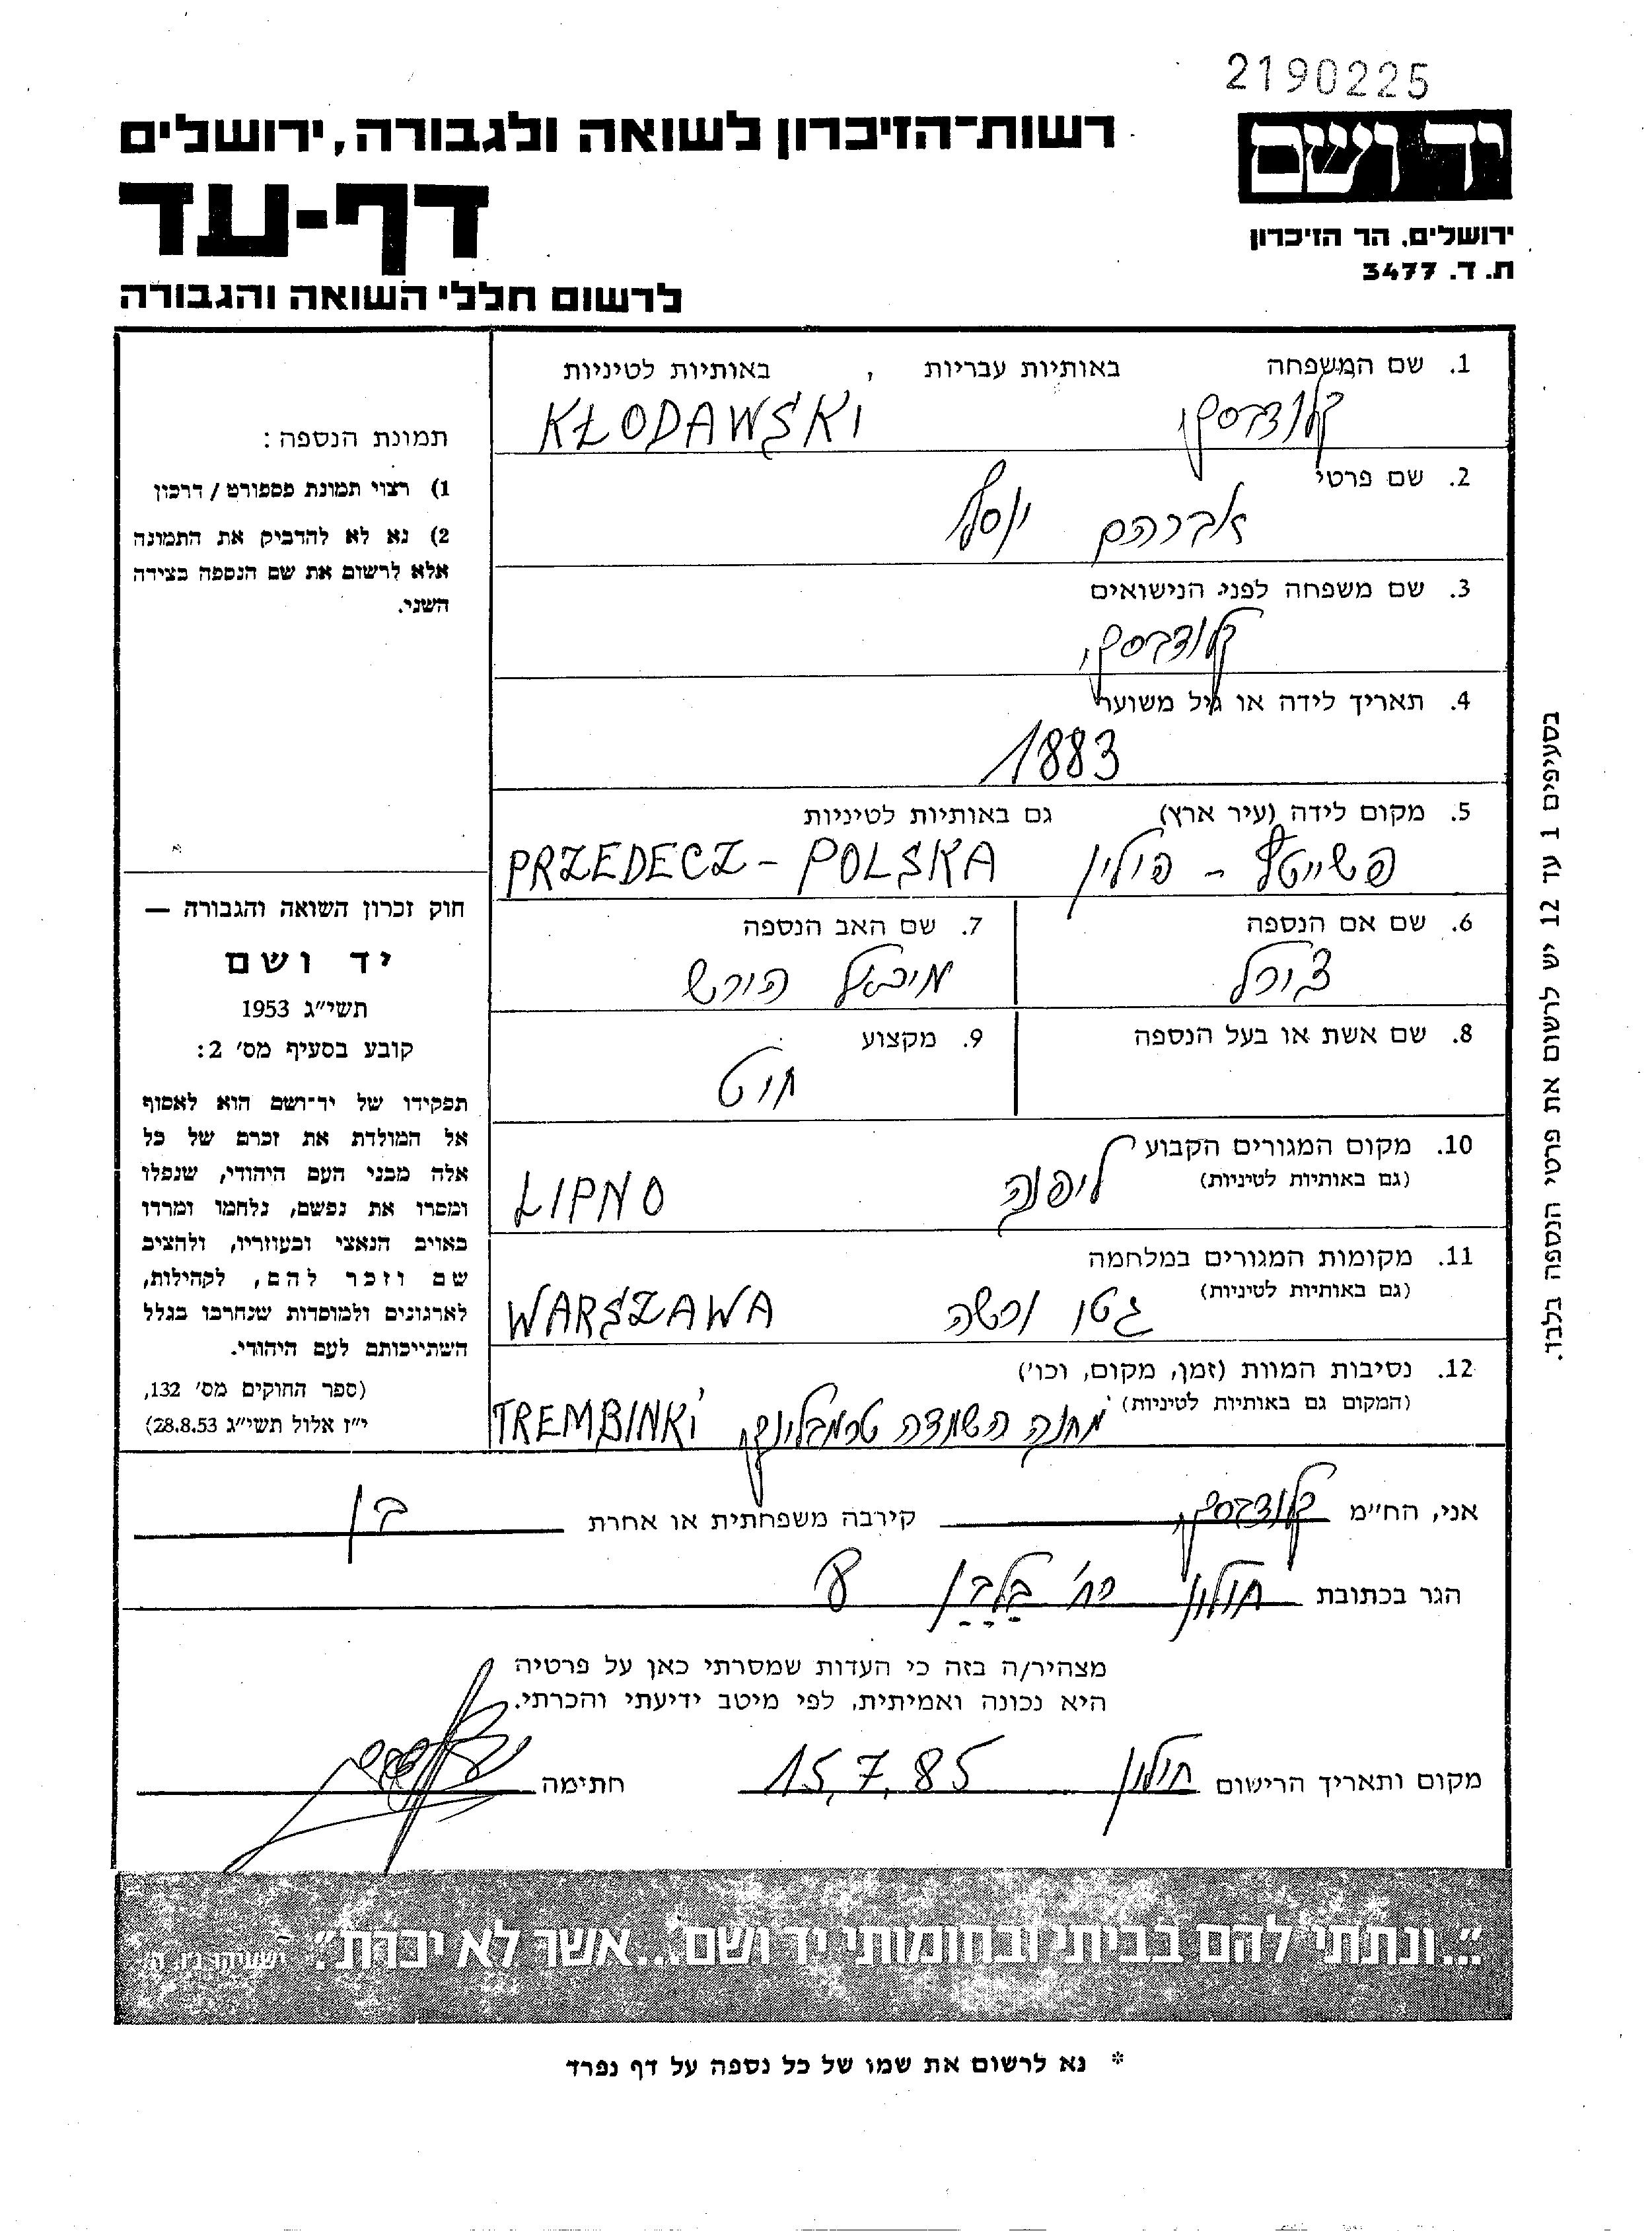 2190225
יד ושם
ירושלים, הר הזיכרון
ת. ד. 3477
רשות־הזיכרון לשואה ולגבורה, ירושלים
דף-עד
לרשום חללי השואה והגבורה
1. שם המשפחה באותיות עבריות , באותיות לטיניות
קלודבסקי KŁODAWSKI
2. שם פרטי
אברהם יוסף
3. שם משפחה לפני הנישואים
קלודבסקי
4. תאריך לידה או גיל משוער
1883
5. מקום לידה (עיר ארץ) גם באותיות לטיניות
פשייטש - פולין PRZEDECZ - POLSKA
6. שם אם הנספה 7. שם האב הנספה
צירל מיכאל הירש
8. שם אשת או בעל הנספה 9. מקצוע
חיט
10. מקום המגורים הקבוע
(גם באותיות לטיניות)
ליפנה LIPNO
11. מקומות המגורים במלחמה
(גם באותיות לטיניות)
גטו ורשה WARSZAWA
12. נסיבות המוות (זמן, מקום, וכו')
(המקום גם באותיות לטיניות)
מחנה השמדה טרמבלינקי TREMBINKI
תמונת הנספה :
1) רצוי תמונת פספורט / דרכון
2) נא לא להדביק את התמונה
אלא לרשום את שם הנספה בצידה
השני.
חוק זכרון השואה והגבורה —
יד ושם
תשי״ג 1953
קובע בסעיף מס׳ 2:
תפקידו של יד־ושם הוא לאסוף
אל המולדת את זכרם של כל
אלה מבני העם היהודי, שנפלו
ומסרו את נפשם, נלחמו ומרדו
באויב הנאצי ובעוזריו, ולהציב
שם וזכר להם, לקהילות,
לארגונים ולמוסדות שנחרבו בגלל
השתייכותם לעם היהודי.
(ספר החוקים מס׳ 132,
י״ז אלול תשי״ג 28.8.53)
בסעיפים 1 עד 12 יש לרשום את פרטי הנספה בלבד.
אני, הח״מ קלודבסקי קירבה משפחתית או אחרת בן
הגר בכתובת חולון רח' 8
מצהיר/ה בזה כי העדות שמסרתי כאן על פרטיה
היא נכונה ואמיתית, לפי מיטב ידיעתי והכרתי.
מקום ותאריך הרישום חולון 15.7.85 חתימה
״...ונתתי להם בביתי ובחומותי יד ושם...אשר לא יכרת״. ישעיהו נ״ו, ה׳
* נא לרשום את שמו של כל נספה על דף נפרד